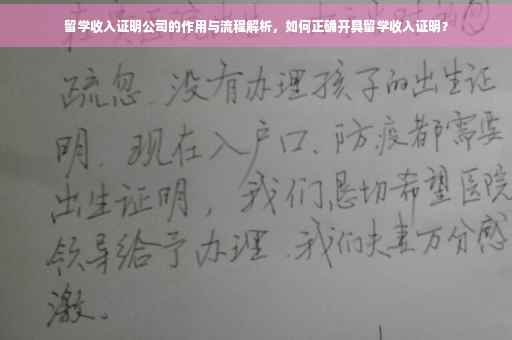 留学收入证明公司的作用与流程解析，如何正确开具留学收入证明？
疏忽，没有办理孩子的出生证
明，现在入户口、防疫都需要
出生证明，我们恳切希望医院
领导给予办理，我们夫妻万分感
激。